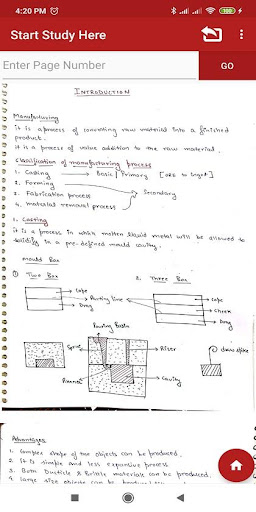 4:20 PM
100
Start Study Here
Enter Page Number
GO
INTRODUCTION
Manufacturing
it is a process of converting raw material into a finished
product.
it is a process of value addition to the raw material.
classification of manufacturing process
1. Casting → Basic / Primary [ORE to Ingot]
2. Forming
3. Fabrication process → Secondary
4. material removal process
1. Casting
it is a process in which molten liquid metal will be allowed to
solidify in a pre-defined mould cavity.
mould Box
① Two Box
2. Three Box
Cope
Parting line
Drag
Cope
Cheek
Drag
Pouring Basin
Sprue
Riser
Runner
Cavity
Advantages
1. Complex shape of the objects can be produced.
2. it is simple and less expensive process.
3. Both Ductile & Brittle materials can be produced.
4. large size objects can be